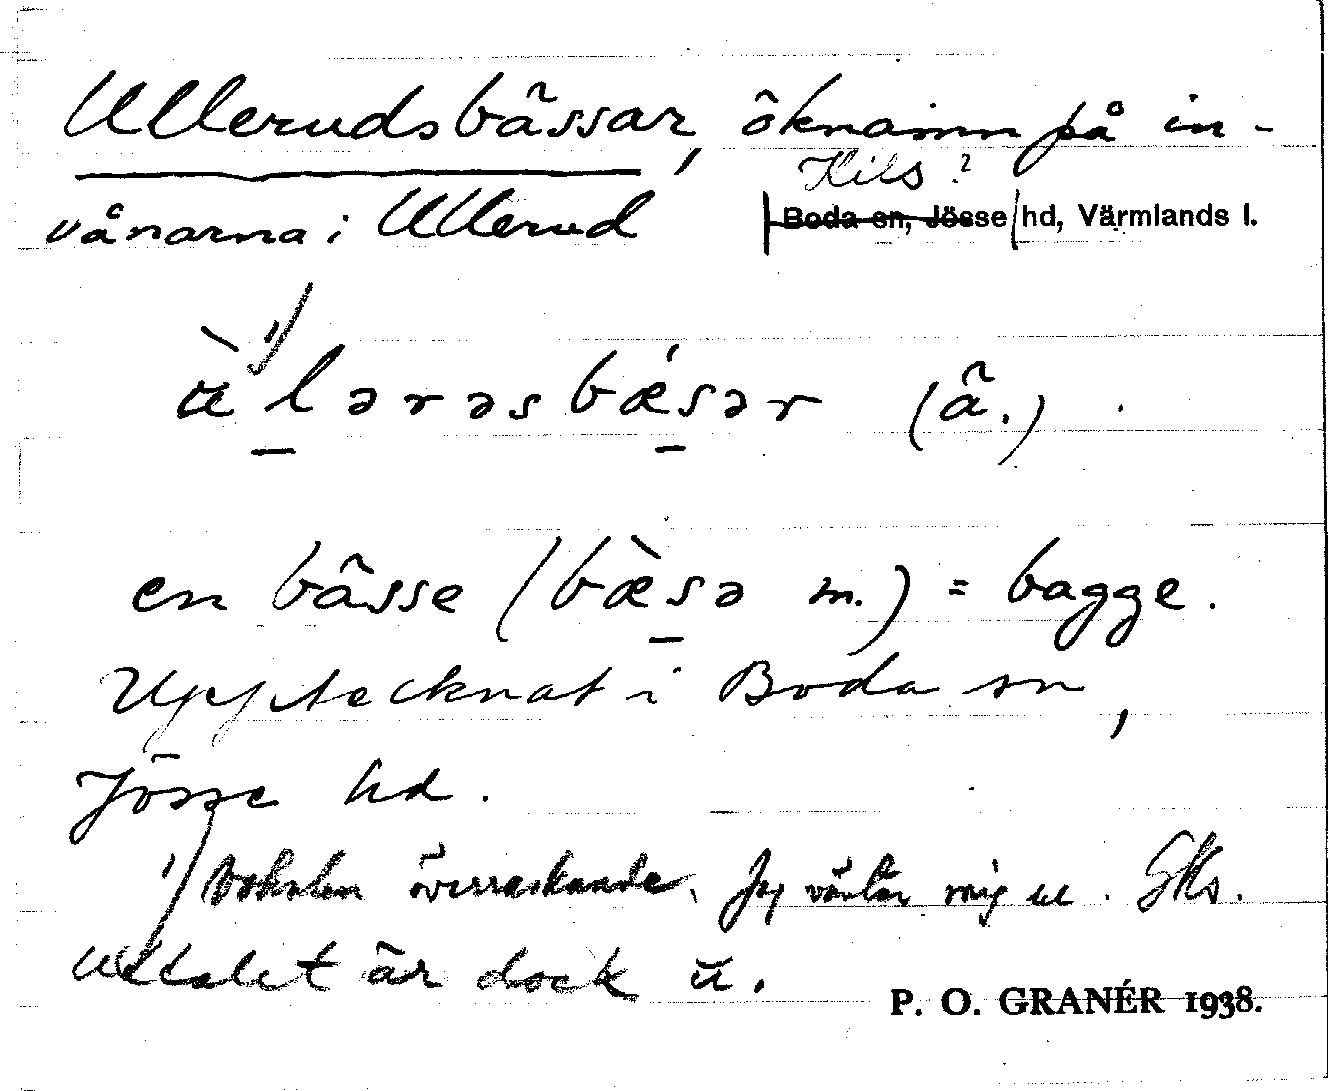 Ullerudsbässar, öknamn på in-
Kils?
vånarna i Ullerud Boda sn, Jösse hd, Värmlands l.
ù̈ 1) lərəsbǽsər (ä.)
en bässe (bæ̀sə m.) = bagge.
Upptecknat i Boda sn,
Jösse hd.
1) Vokalen överraskande. Jag väntar mig u. Gks.
Uttalet är dock ü.
P. O. GRANÉR 1938.